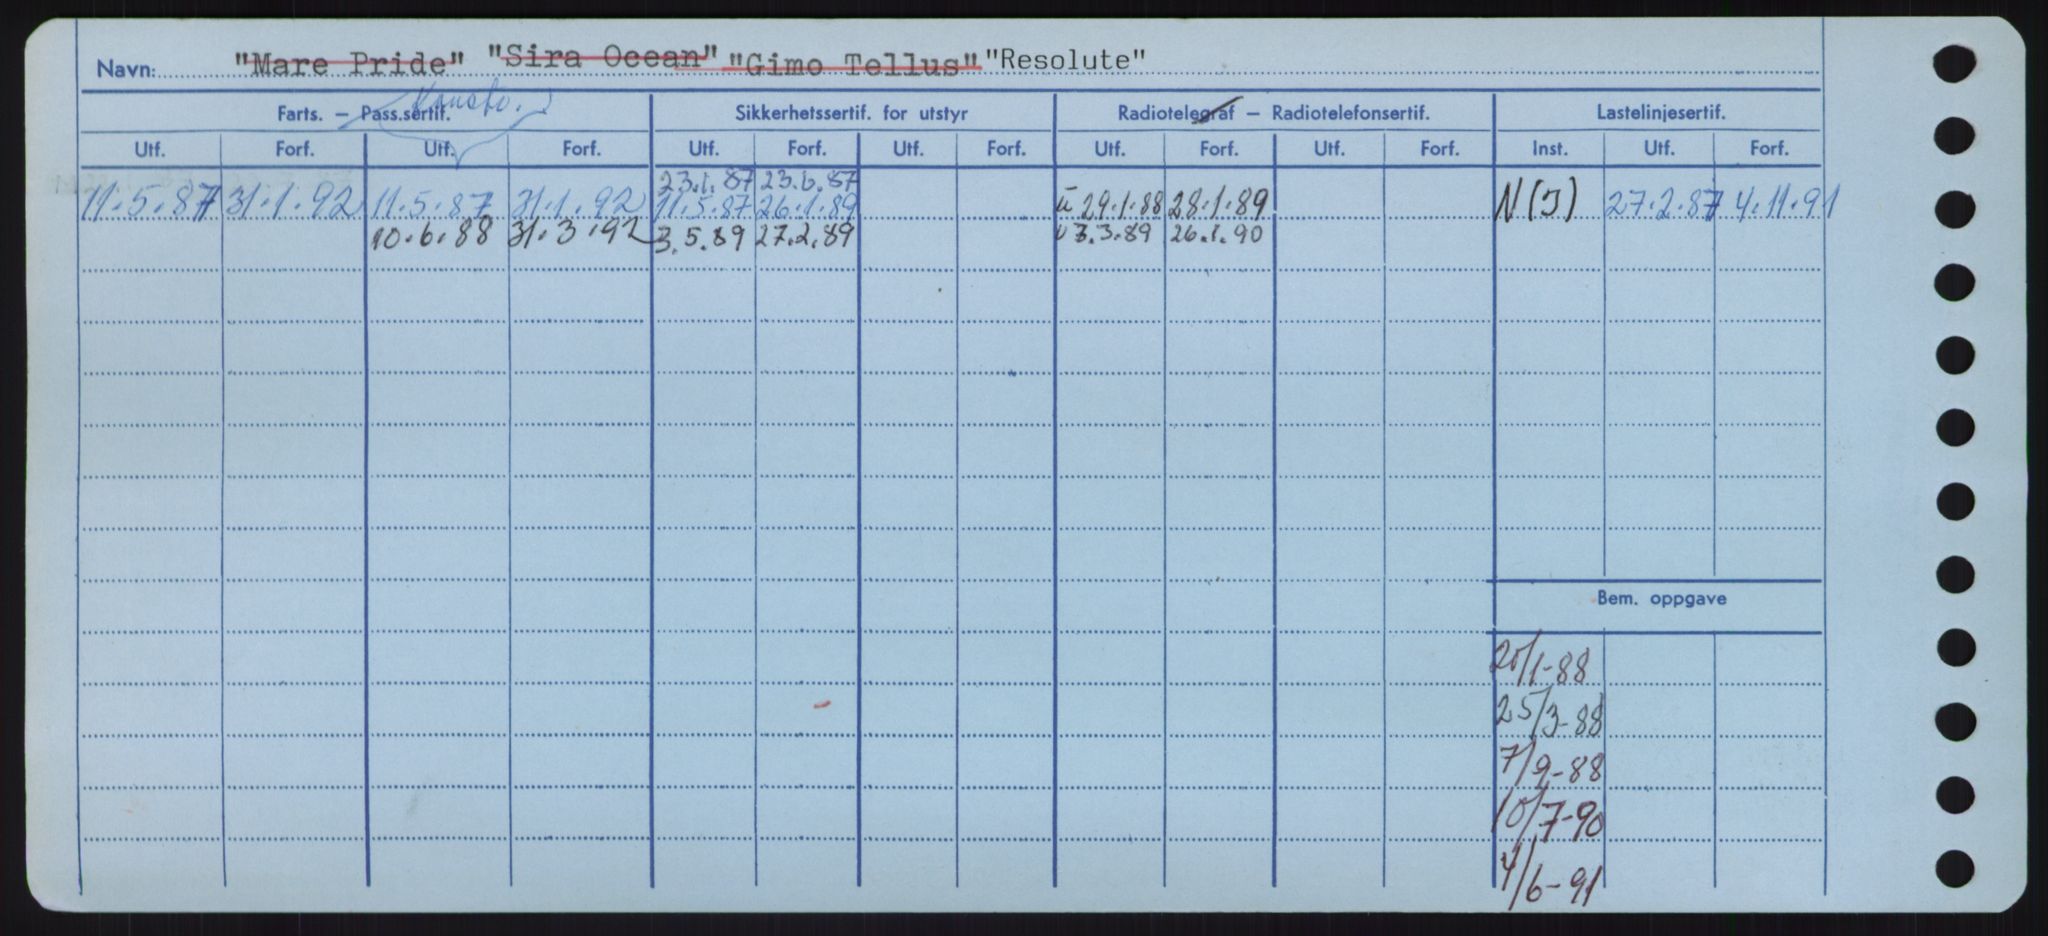 Navn: "Mare Pride" "Sira Ocean" "Gimo Tellus" "Resolute"
Konstr.
Farts. — Pass.sertif. Sikkerhetssertif. for utstyr Radiotelegraf — Radiotelefonsertif. Lastelinjesertif.
Utf. Forf. Utf. Forf. Utf. Forf. Utf. Forf. Utf. Forf. Utf. Forf. Inst. Utf. Forf.
23.1.87 23.6.87
11.5.87 31.1.92 11.5.87 31.1.92 11.5.87 26.1.89 u 29.1.88 28.1.89 N(I) 27.2.87 4.11.91
10.6.88 31.3.92 3.5.89 27.2.89 u 3.3.89 26.1.90
Bem. oppgave
20/1-88
25/3-88
7/9-88
10/7-90
4/6-91